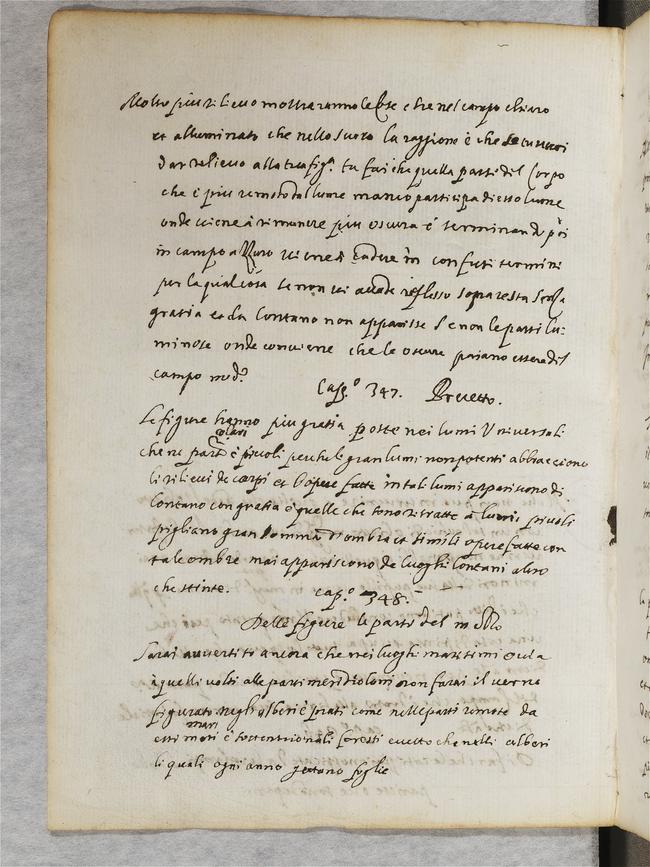 Molto piu rilievo mostraranno le cose che nel campo chiaro
et alluminato che nello scuro la raggione è che se tu vuoi
dar relievo alla tua fig.ª tu fai che quella parte del Corpo
che è piu remota dal lume manco participa di esso lume
onde viene à rimanere piu oscura e terminando poi
in campo scuro viene à cadere in confusi termini
per la qual cosa se non vi accade reflesso sopra resta senza
gratia et da lontano non apparisse se non le parti lu:
minose onde conviene che le oscure paiano essere del
campo med.º
Cap.º 347. Precetto.
Le figure hanno piu gratia poste nei lumi Universali
che ne particolari è picoli perche le gran lumi non potenti abbracciono
li rilievi de corpi et l'opere fatte in tal lumi appariscono di
lontano con gratia è quelle che sono ritratte à lumi picoli
pigliano gran somma d'ombra et simili opere fatte con
tale ombre mai appariscono da luoghi lontani altro
che stinte.
cap.º 348.
Delle figure le parte del mondo
Sarai avvertito ancora che nei luoghi maritimi ò vi a
à quelli volti alle parti meridionali non farai il verno
figurato negli alberi è prati come nelle parti remote da
essi mari è settentrionali foresti eccetto che nelli alberi
li quali ogni anno gettano foglie